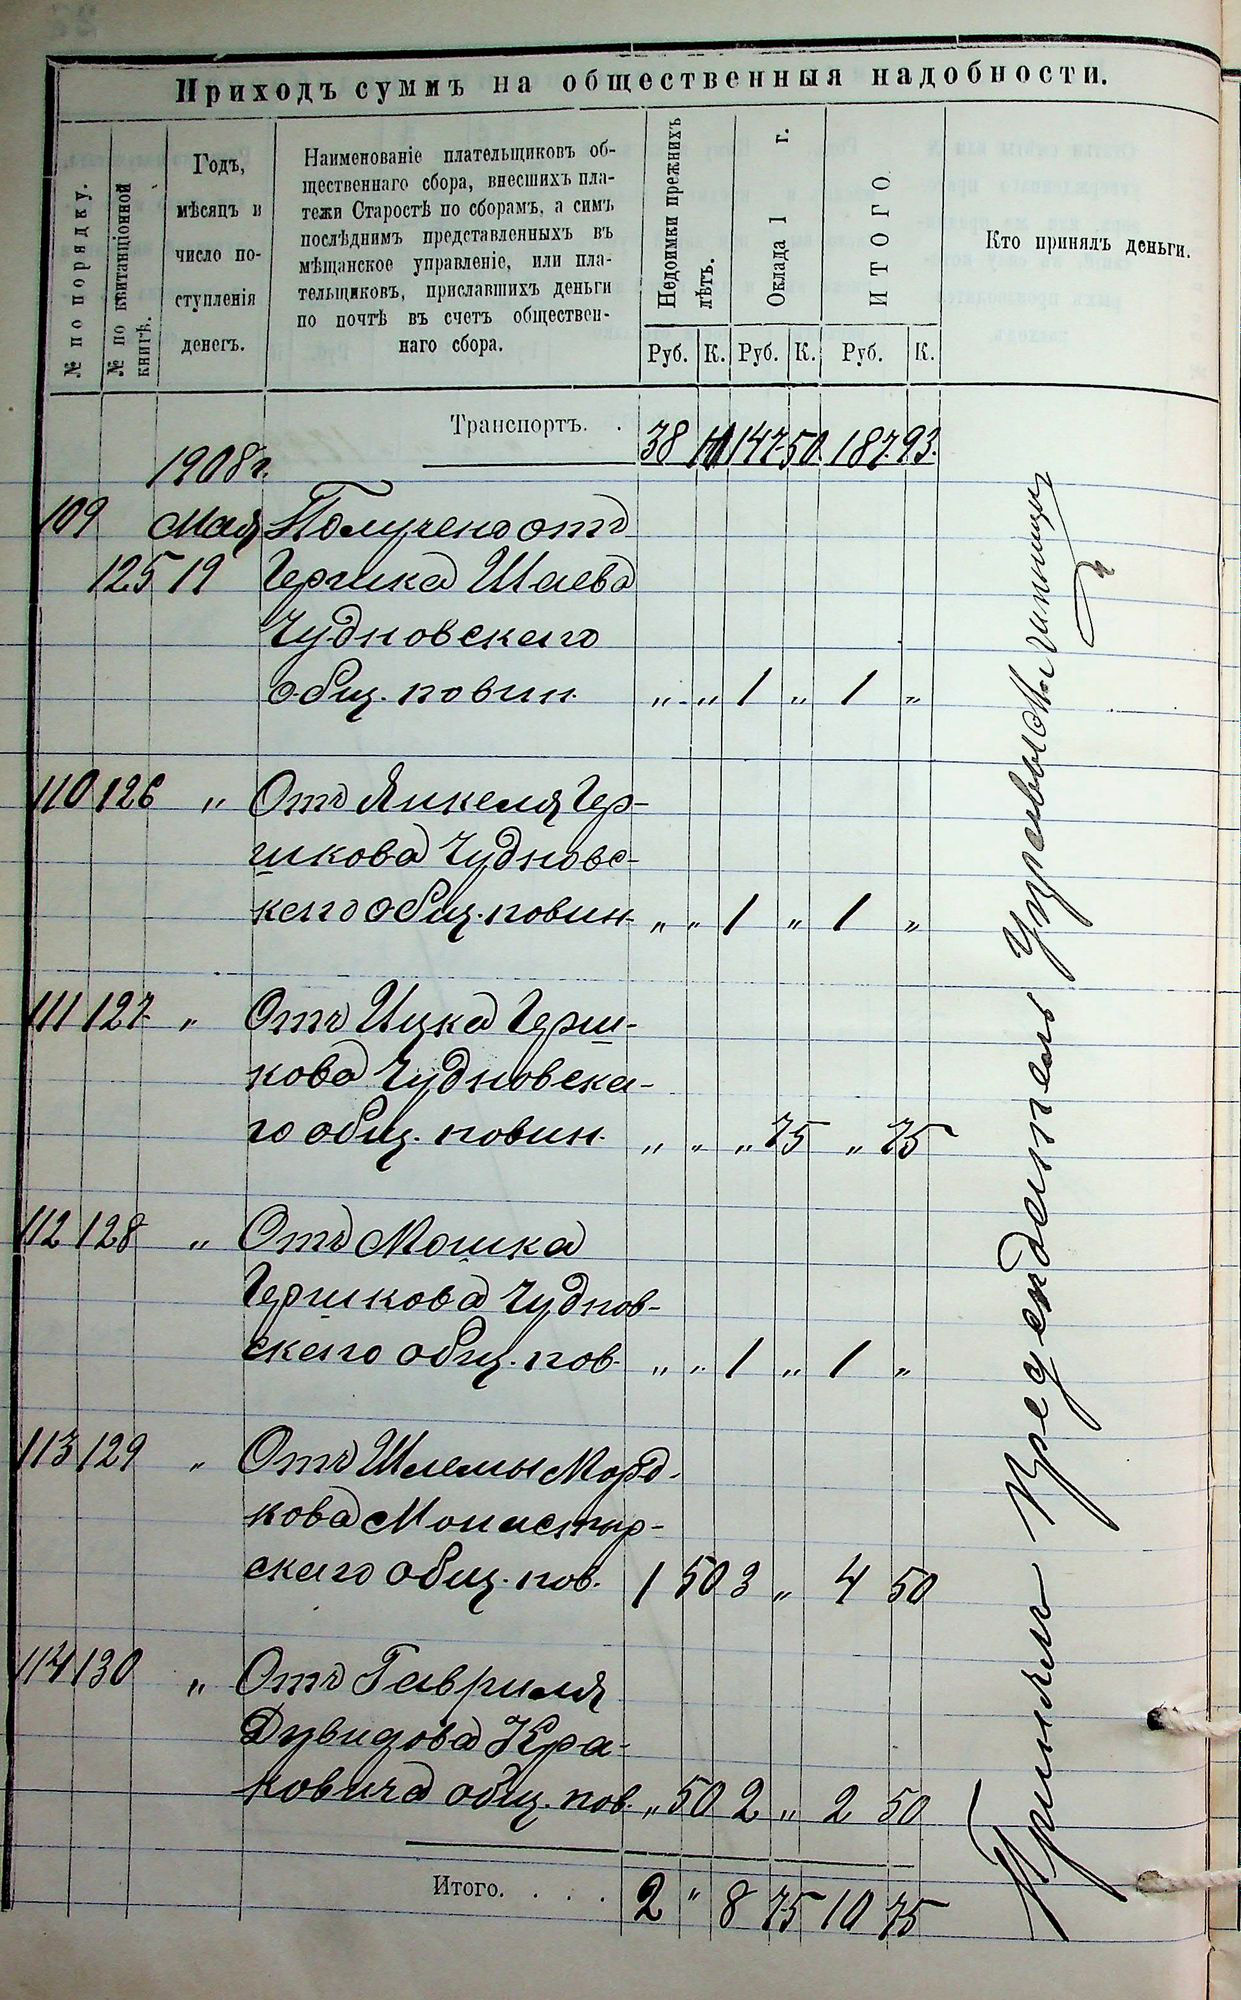 Приходъ суммъ на общественныя надобности.
№ по порядку.
№ по квитанціонной книгѣ.
Годъ,
мѣсяцъ и
число по-
ступленія
денегъ.
Наименованіе плательщиковъ об-
щественнаго сбора, внесшихъ пла-
тежи Старостѣ по сборамъ, а симъ
послѣднимъ представленныхъ въ
мѣщанское управленіе, или пла-
тельщиковъ, приславшихъ деньги
по почтѣ въ счетъ обществен-
наго сбора.
Недоимки прежнихъ лѣтъ.
Оклада 1 г.
ИТОГО.
Кто принялъ деньги.
Руб. К. Руб. К. Руб. К.
Транспортъ. . 38 147 50 187 93.
1908 г.
109 Мая Получено отъ
125 19 Гершка Шаева
Чудновскаго
общ. повин. „ „ 1 „ 1 „
110 126 „ Отъ Янкеля Гер-
шкова Чудновс-
каго общ. повин. „ „ 1 „ 1 „
111 127 „ Отъ Ицка Герш-
кова Чудновска-
го общ. повин. „ „ „ 75 „ 75
112 128 „ Отъ Мошка
Гершкова Чуднов-
скаго общ. пов. „ „ 1 „ 1 „
113 129 „ Отъ Шлемы Морд-
кова Монастыр-
скаго общ. пов. 1 50 3 „ 4 50
114 130 „ Отъ Гавриля
Дувидова Кра-
ковича общ. пов. „ 50 2 „ 2 50
Итого. . . . 2 „ 8 75 10 75
Принялъ Председатель Управы